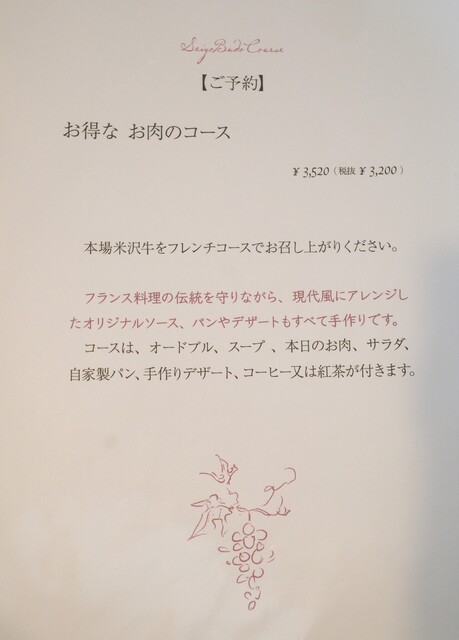 Seiyo Budo Course
【ご予約】
お得な お肉のコース
¥ 3,520 ( 税抜 ¥ 3,200 )
本場米沢牛をフレンチコースでお召し上がりください。
フランス料理の伝統を守りながら、現代風にアレンジし
たオリジナルソース、パンやデザートもすべて手作りです。
コースは、オードブル、スープ 、本日のお肉、サラダ、
自家製パン、手作りデザート、コーヒー又は紅茶が付きます。